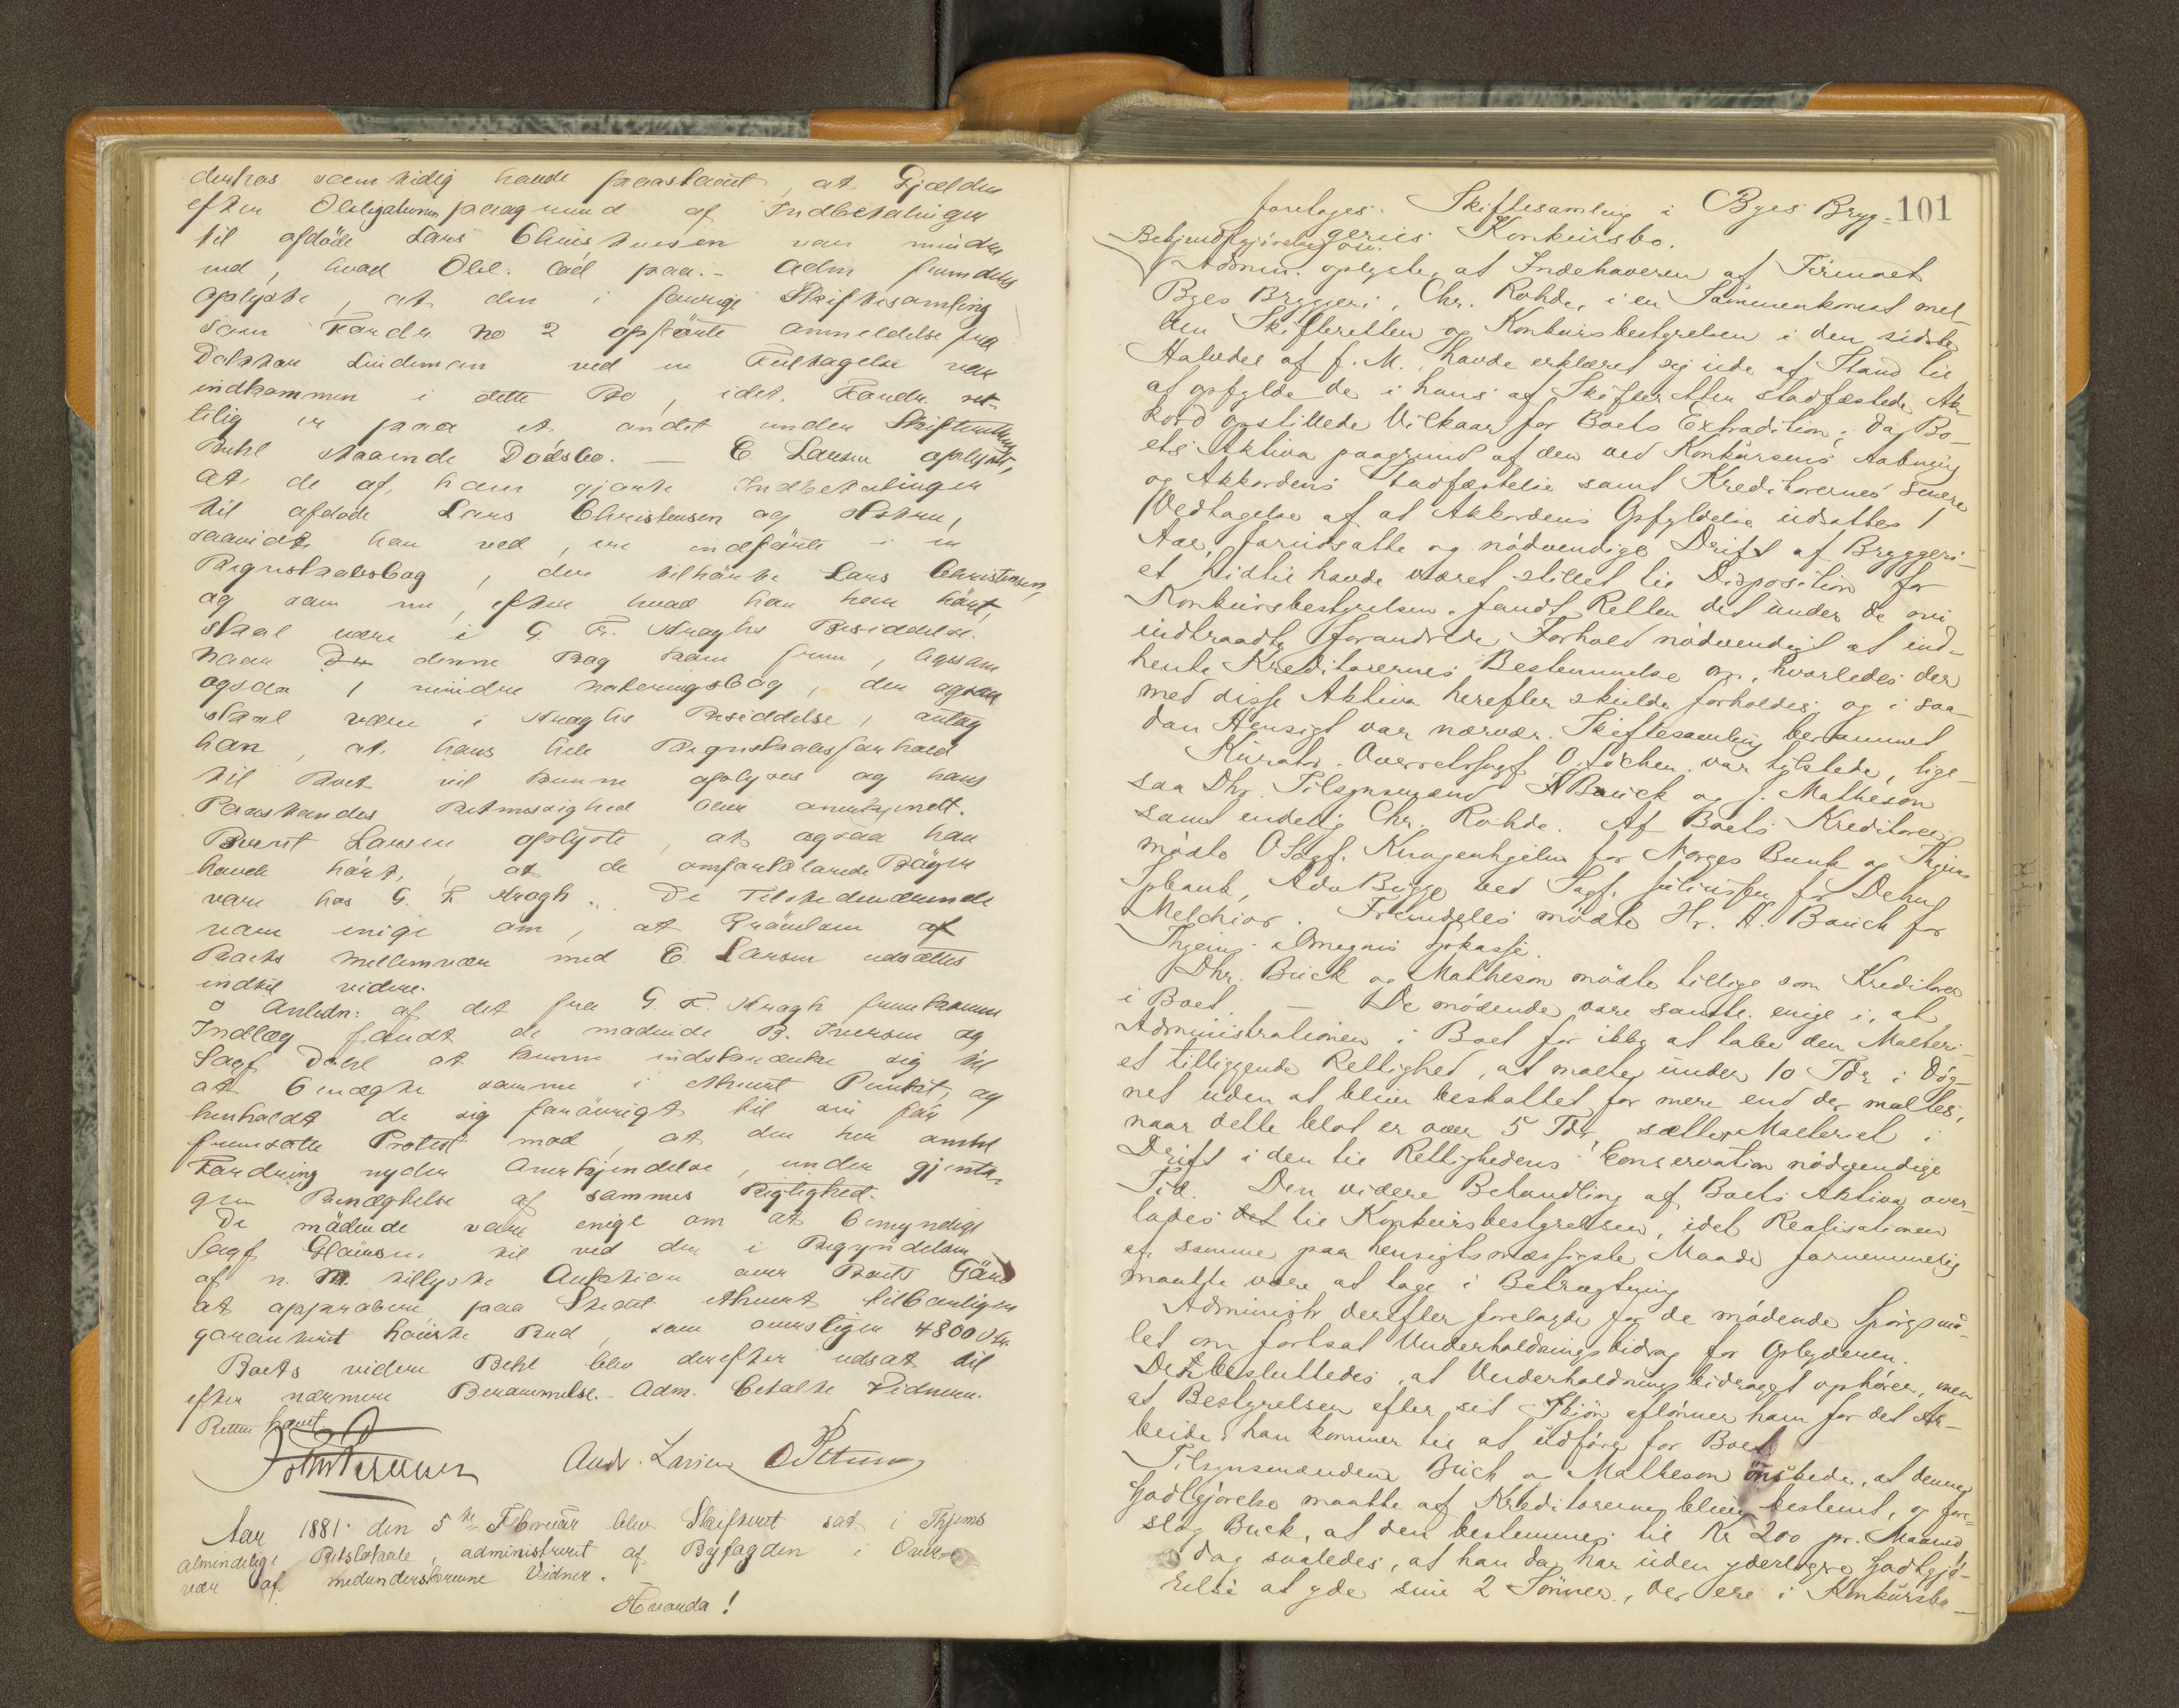 derhos samtidig havde paastaaet, at Gjælden
efter Obligationen paagrund af Indbetalinger
til afdöde Lars Christensen var mindre
end, hvad Obl. löd paa. - Adm. fremdeles
oplyste, at den i forrige Skiftesamling
som Fordr. No 2 opförte Anmeldelse fra
Doktor Lindeman ved en Feiltagelse var
indkommen i dette Bo, idet Fordr. ret-
telig er paa et andet under Skifterettens
Behl staaende Dödsbo. — E. Larsen oplyste,
at de af ham gjorte Indbetalinger
til afdöde Lars Christensen og Hustru,
saavidt han ved, ere indförte i en
Regnskabsbog, der tilhörte Lars Christensen,
og som nu, efter hvad han har hört,
skal være i G. F. Kraghs Besiddelse.
Naar denne Bog kom frem, ligesom
ogsaa 1 mindre Noteringsbog, der ogsaa
skal være i Kraghs Besiddelse, antog
han, at hans hele Regnskabsforhold
til Boet vil kunne oplyses og hans
Paastandes Retmæssighed blive anerkjendt.
Bernt Larsen oplyste, at ogsaa han
havde hört, at de omforklarede Böger
vare hos G. F. Kragh. De Tilstedeværende
vare enige om, at Prövelsen af
Boets Mellemvær med E. Larsen udsættes
indtil videre.
I Anledn: af det fra G. F. Kragh fremkomne
Indlæg fandt de mödende B. Iversen og
Sagf. Dahl at kunne indskrænke sig til
at benægte samme i ethvert Punkt, og
henholdt de sig foröivrigt til sin för
fremsatte Protest mod, at den her anmeldte
Fordring nyder Anerkjendelse, under gjenta-
gen Benægtelse af sammes Rigtighed.
De mödende vare enige om at bemyndige
Sagf. Hansen til ved den i Begyndelsen
af n. M. tillyste Auktion over Boets
at approbere paa Stedet ethvert tilbörligen
garanteret höieste Bud, som overstiger 4800 Kr.
Boets videre Behl blev derefter udsat til
efter nærmere Berammelse. - Adm. betalte Vidnerne.
Retten hævet
Andr. Larsen O Petersen
Aar 1881 den 5te Februar blev Skifteret sat i Thjems
almindelige Retslokale, administreret af Byfogden i Over-
vær af medunderskrevne Vidner.
Hvorda!
101
foretoges: Skiftesamling i Byes Bryg-
geriis Konkursbo.
Bekjendtgjörelse
Admin. oplyste, at Indehaveren af Firmaet
Byes Bryggeri, Chr. Rohde, i en Sammenkomst mel-
lem Skifteretten og Konkursbestyrelsen i den sidste
Halvdel af f. M. havde erklæret sig ude af Stand til
at opfylde de i hans af Skifteretten stadfæstede Ak-
kord opstillede Vilkaar for Boets Extradition; da Bo-
ets Aktiva paagrund af den ved Konkursens Aabning
og Akkordens Stadfæstelse samt Kreditorernes senere
Vedtagelse af at Akkordens Opfyldelse udsattes 1
Aar, forudsatte og nödvendige Drift af Bryggeri-
et hidtil havde været stillet til Disposition for
Konkursbestyrelsen, fandt Retten det under de nu
indtraadte forandrede Forhold nödvendigt at ind-
hente Kreditorernes Bestemmelse om, hvorledes der
med disse Aktiva herefter skulde forholdes, og i saa-
dan Hensigt var nærvær. Skiftesamling berammet
Kurator Overretssagf. O. Löchen var tilstede, lige-
saa Dhr. Tilsynsmænd H Bauck og J. Matheson
samt endelig Chr. Rohde. Af Boets Kreditorer
mödte O Sagf. Klingenhjelm for Norges Bank og Thjems
Spbank, Adv Bugge ved Sagf. Juliussen for Dehn
Melchior. Fremdeles mödte Hr. H. Bauck for
Thjems Omegns Spkasse.
Dhr. Buck og Matheson mödte tillige som Kreditorer
i Boet. — De mödende vare samtl. enige i, at
Administrationen i Boet for ikke at tabe den Malteri-
et tilliggende Rettighed, at malte under 10 Tdr i Dög-
net uden at blive beskattet for mere end der maltes,
naar dette blot er over 5 Tdr, sætter Malteriet i
Drift i den til Rettighedens Conservation nödvendige
Tid. Den videre Behandling af Boets Aktiva over-
lodes det til Konkursbestyrelsen, idet Realisationen
af samme paa hensigtsmæssigste Maade fornemmelig
maatte være at tage i Betragtning
Administr derefter forelagde for de mödende Spörgsmaa-
let om fortsat Underholdningsbidrag for Opbyderen.
Det besluttedes, at Underholdningsbidraget ophörer, men
at Bestyrelsen efter sit Skjön aflönner ham for det Ar-
beide, han kommer til at udföre for Boet.
Tilsynsmændene Buck og Matheson önskede, at denne
Godtgjörelse maatte af Kreditorerne blive bestemt, og fore-
slog Buck, at den bestemmes til Kr 200 pr. Maaned,
dog saaledes, at han da har uden yderligere Godtgjö-
relse at yde sine 2 Sönner, der ere i Konkursbo-